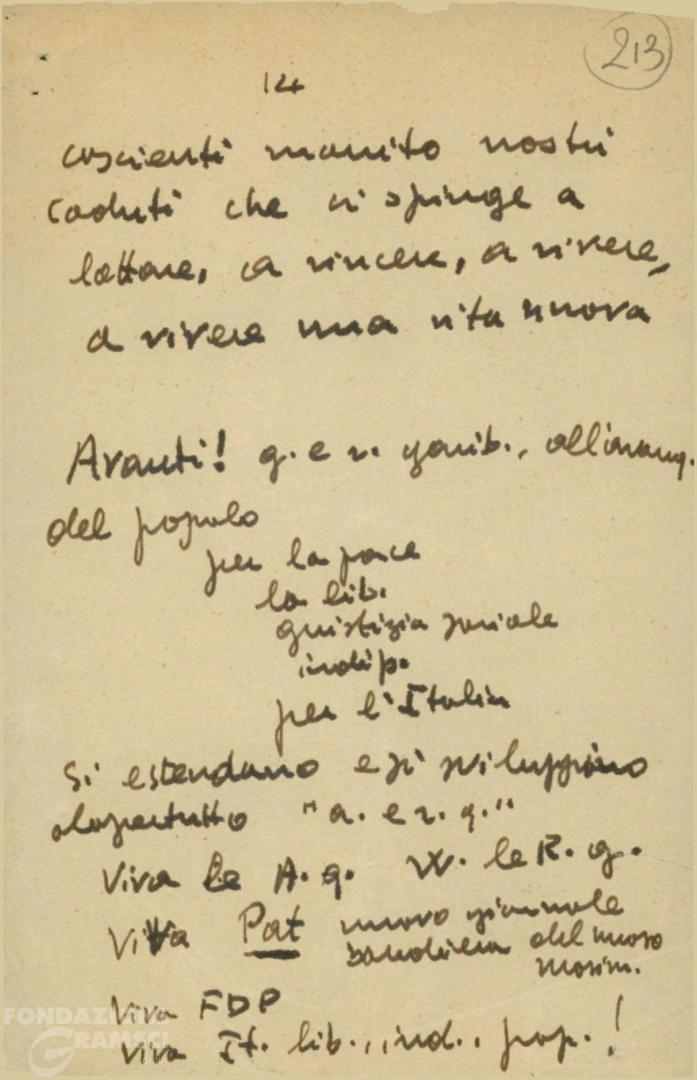 213
14
coscienti monito nostri
Caduti che ci spinge a
lottare, a vincere, a vivere,
a vivere una vita nuova
Avanti! g. e r. garib., all'avang.
del popolo
per la pace
la lib.
giustizia sociale
indip.
per l'Italia
Si estendano e si sviluppino
dapertutto "a. e r. g."
Viva le A. g. W. le R. g.
Viva Pat nuovo giornale
bandiera del nuovo
movim.
Viva FDP
viva It. lib., ind., pop.!
FONDAZIONE
GRAMSCI